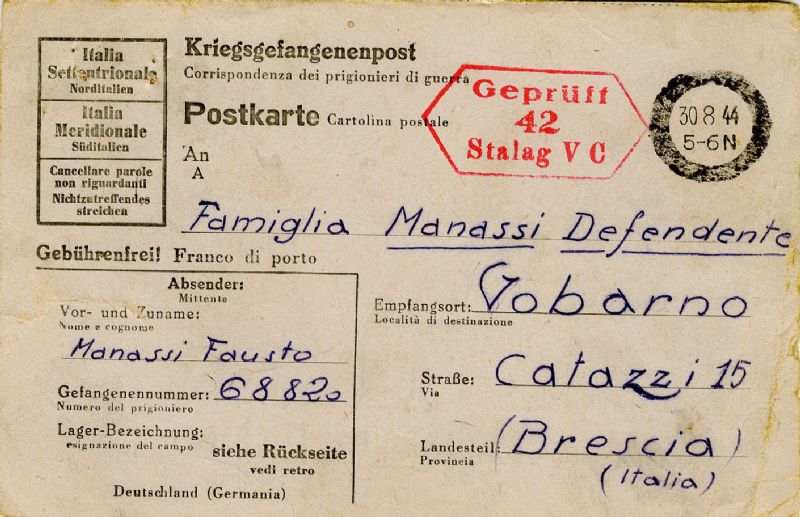 Italia
Settentrionale
Norditalien
Italia
Meridionale
Süditalien
Cancellare parole
non riguardanti
Nichtzutreffendes
streichen
Kriegsgefangenenpost
Corrispondenza dei prigionieri di guerra
Postkarte Cartolina postale
An
A
Geprüft
42
Stalag V C
30 8 44
5-6 N
Famiglia Manassi Defendente
Gebührenfrei! Franco di porto
Absender:
Mittente
Vor- und Zuname:
Nome e cognome
Manassi Fausto
Gefangenennummer: 68820
Numero del prigioniero
Lager-Bezeichnung:
esignazione del campo
siehe Rückseite
vedi retro
Deutschland (Germania)
Empfangsort: Vobarno
Località di destinazione
Straße: Catazzi 15
Via
Landesteil: (Brescia)
Provincia
(Italia)